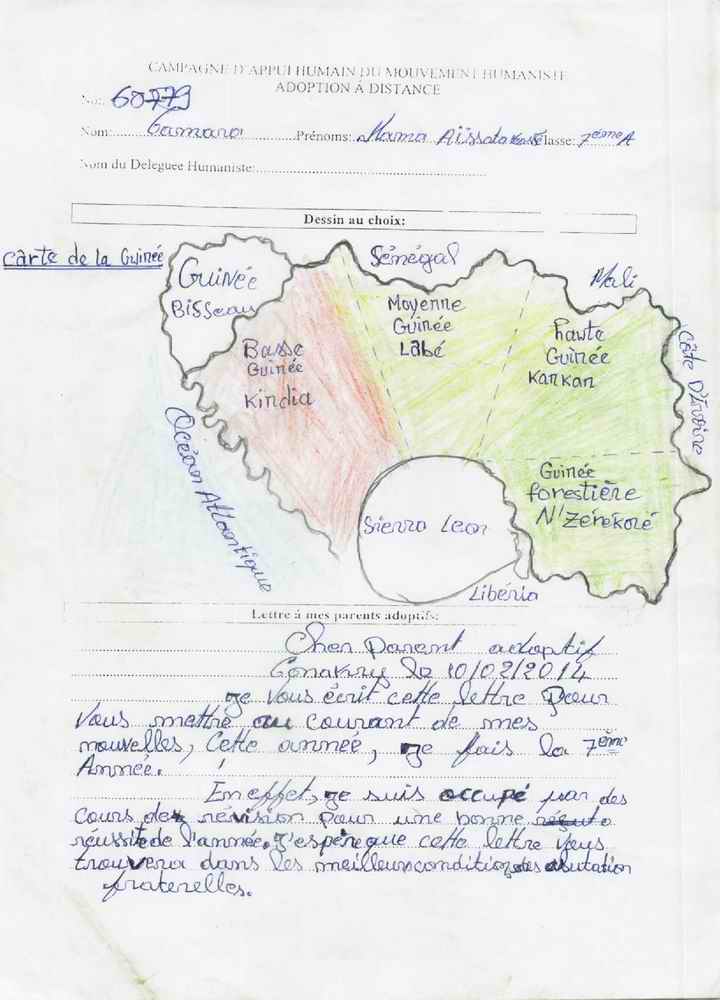 CAMPAGNE D'APPUI HUMAIN DU MOUVEMENT HUMANISTE
ADOPTION À DISTANCE
No: 60779
Nom: Camara Prénoms: Mama Aïssata Classe: 7ème A
Nom du Deleguée Humaniste:
Dessin au choix:
Carte de la Guinée
Guinée
Bissau
Sénégal
Mali
Côte D'Ivoire
Moyenne
Guinée
Labé
haute
Guinée
Kankan
Basse
Guinée
Kindia
Océan Atlantique
Guinée
forestière
N'Zérékoré
Sierra Leon
Libéria
Lettre à mes parents adoptifs:
Cher Parent adoptif
Conakry le 10/02/2014
Je vous écrit cette lettre Pour
Vous mettre au courant de mes
nouvelles, Cette année, je fais la 7ème
Année.
En effet, je suis occupé par des
cours de révision pour une bonne
réussite de l'année. J'espère que cette lettre Vous
trouvera dans les meilleurs conditions
fraterelles.